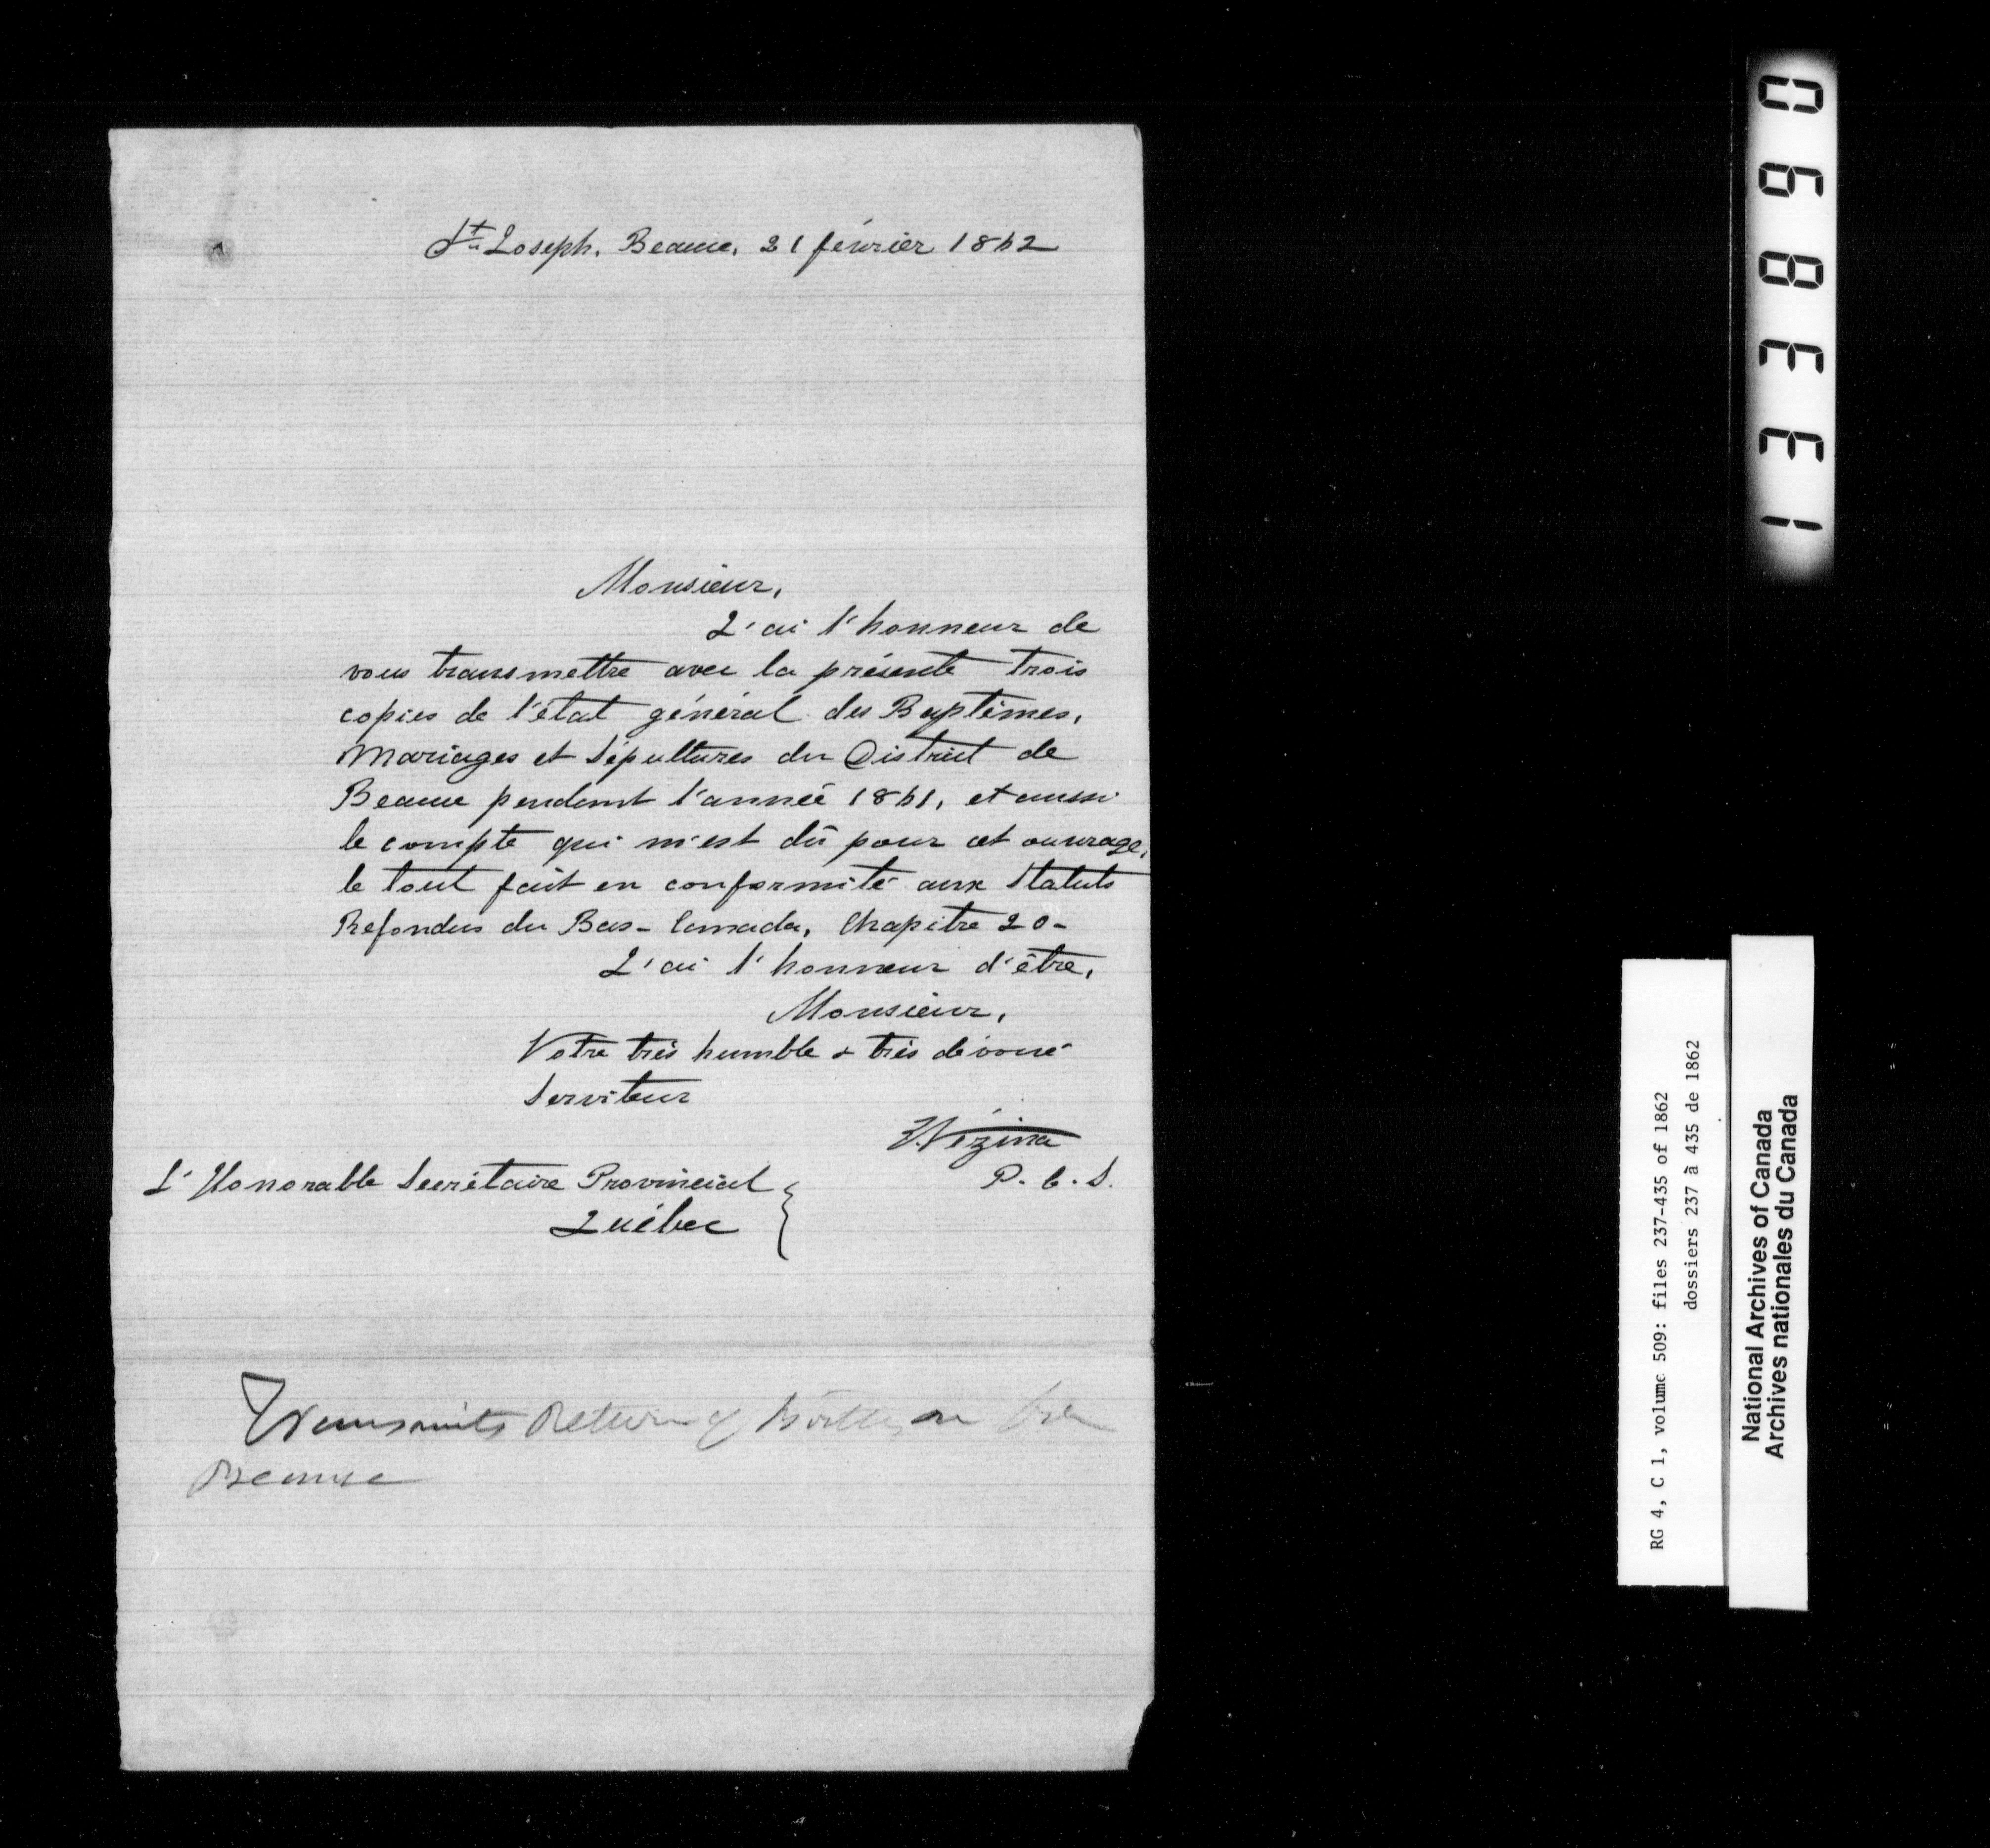 St Joseph, Beauce, 21 février 1862
Monsieur,
J'ai l'honneur de
vous transmettre avec la présente trois
copies de l'état général des Baptêmes,
Mariages et Sépultures du District de
Beauce pendant l'année 1861, et aussi
le compte qui m'est dû pour cet ouvrage,
le tout fait en conformité aux Statuts
Refondus du Bas-Canada, Chapitre 20-
J'ai l'honneur d'être,
Monsieur,
Votre très humble & très dévoué
Serviteur
Vézina
P. C. S.
L'Honorable Secrétaire Provincial
Québec
Transmits Return of Births
Beauce
133890
RG 4, C 1, volume 509: files 237-435 of 1862
dossiers 237 à 435 de 1862
National Archives of Canada
Archives nationales du Canada